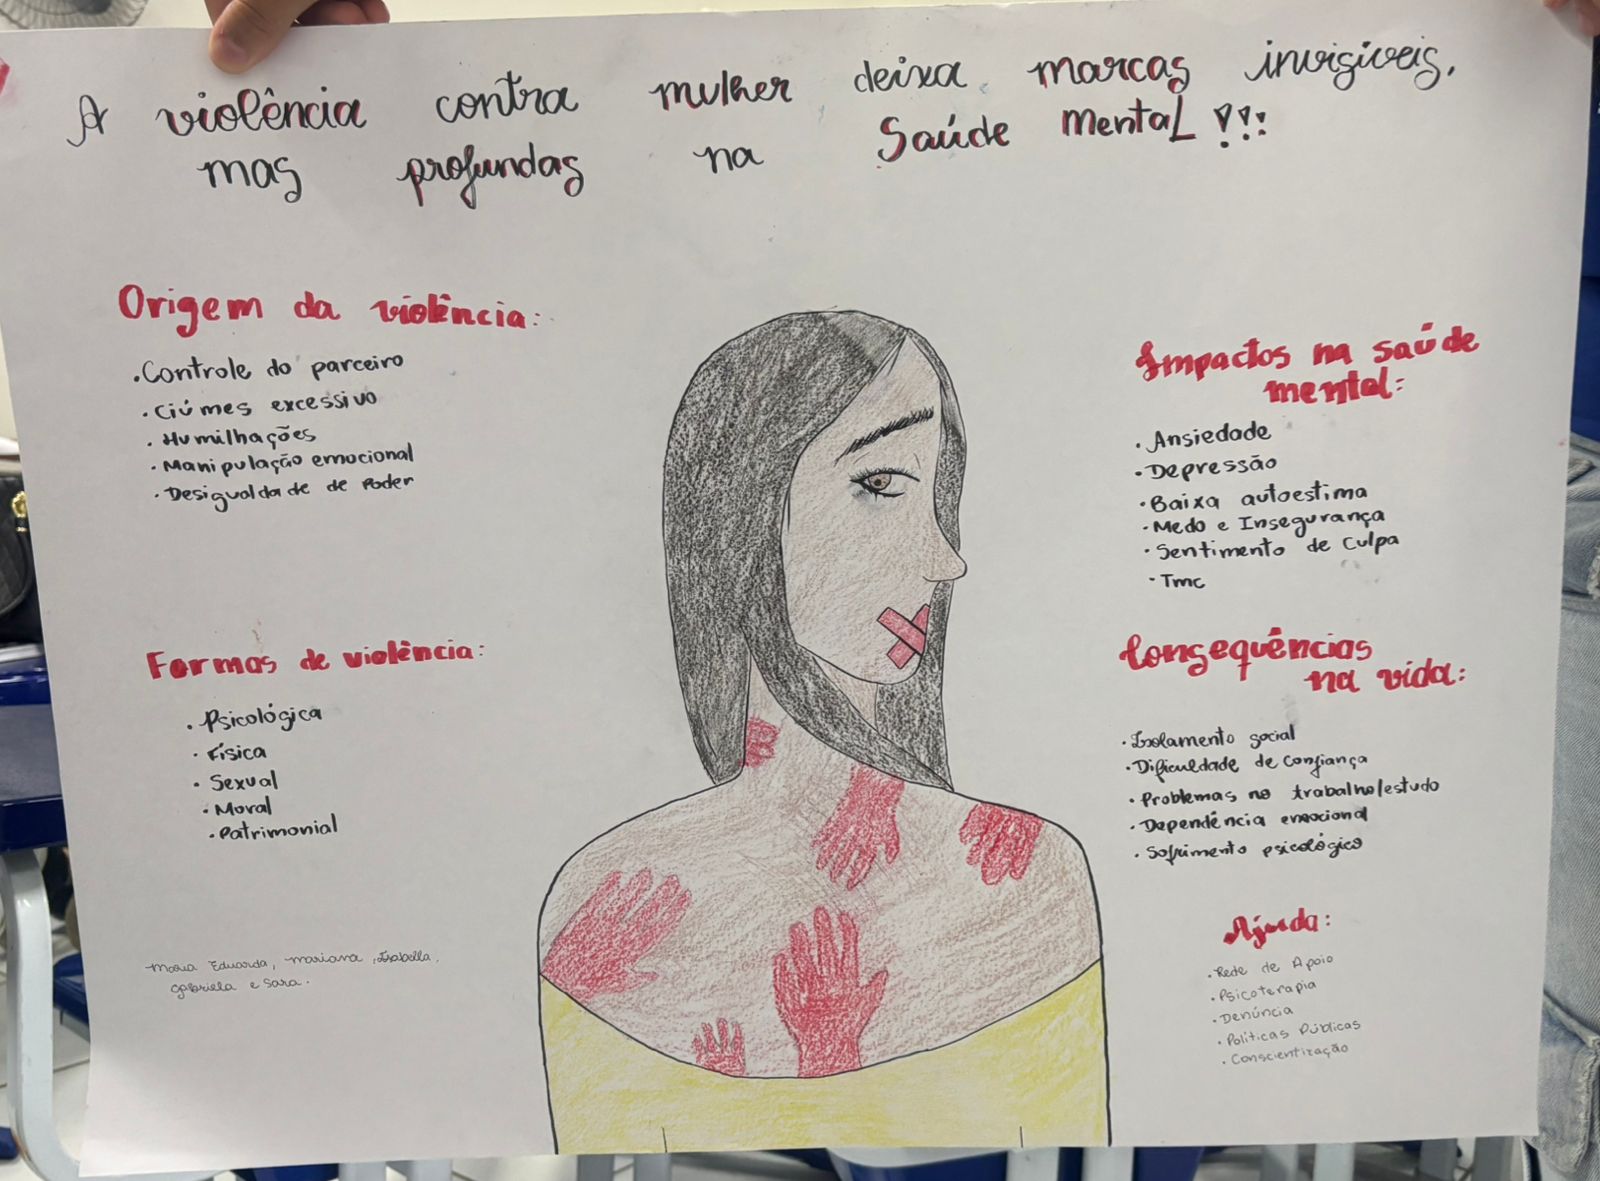 A violência contra mulher deixa marcas invisíveis,
mas profundas na Saúde mental!!!
Origem da violência:
. Controle do parceiro
. Ciúmes excessivo
. Humilhações
. Manipulação emocional
. Desigualdade de Poder
Formas de violência:
. Psicológica
. Física
. Sexual
. Moral
. Patrimonial
Maria Eduarda, mariana, Isabella,
gabriela e Sara.
Impactos na saúde
mental:
. Ansiedade
. Depressão
. Baixa autoestima
. Medo e Insegurança
. Sentimento de Culpa
. Tmc
Consequências
na vida:
. Isolamento social
. Dificuldade de confiança
. Problemas no trabalho/estudo
. Dependência emocional
. Sofrimento psicológico
Ajuda:
. Rede de Apoio
. Psicoterapia
. Denúncia
. Políticas Públicas
. Conscientização